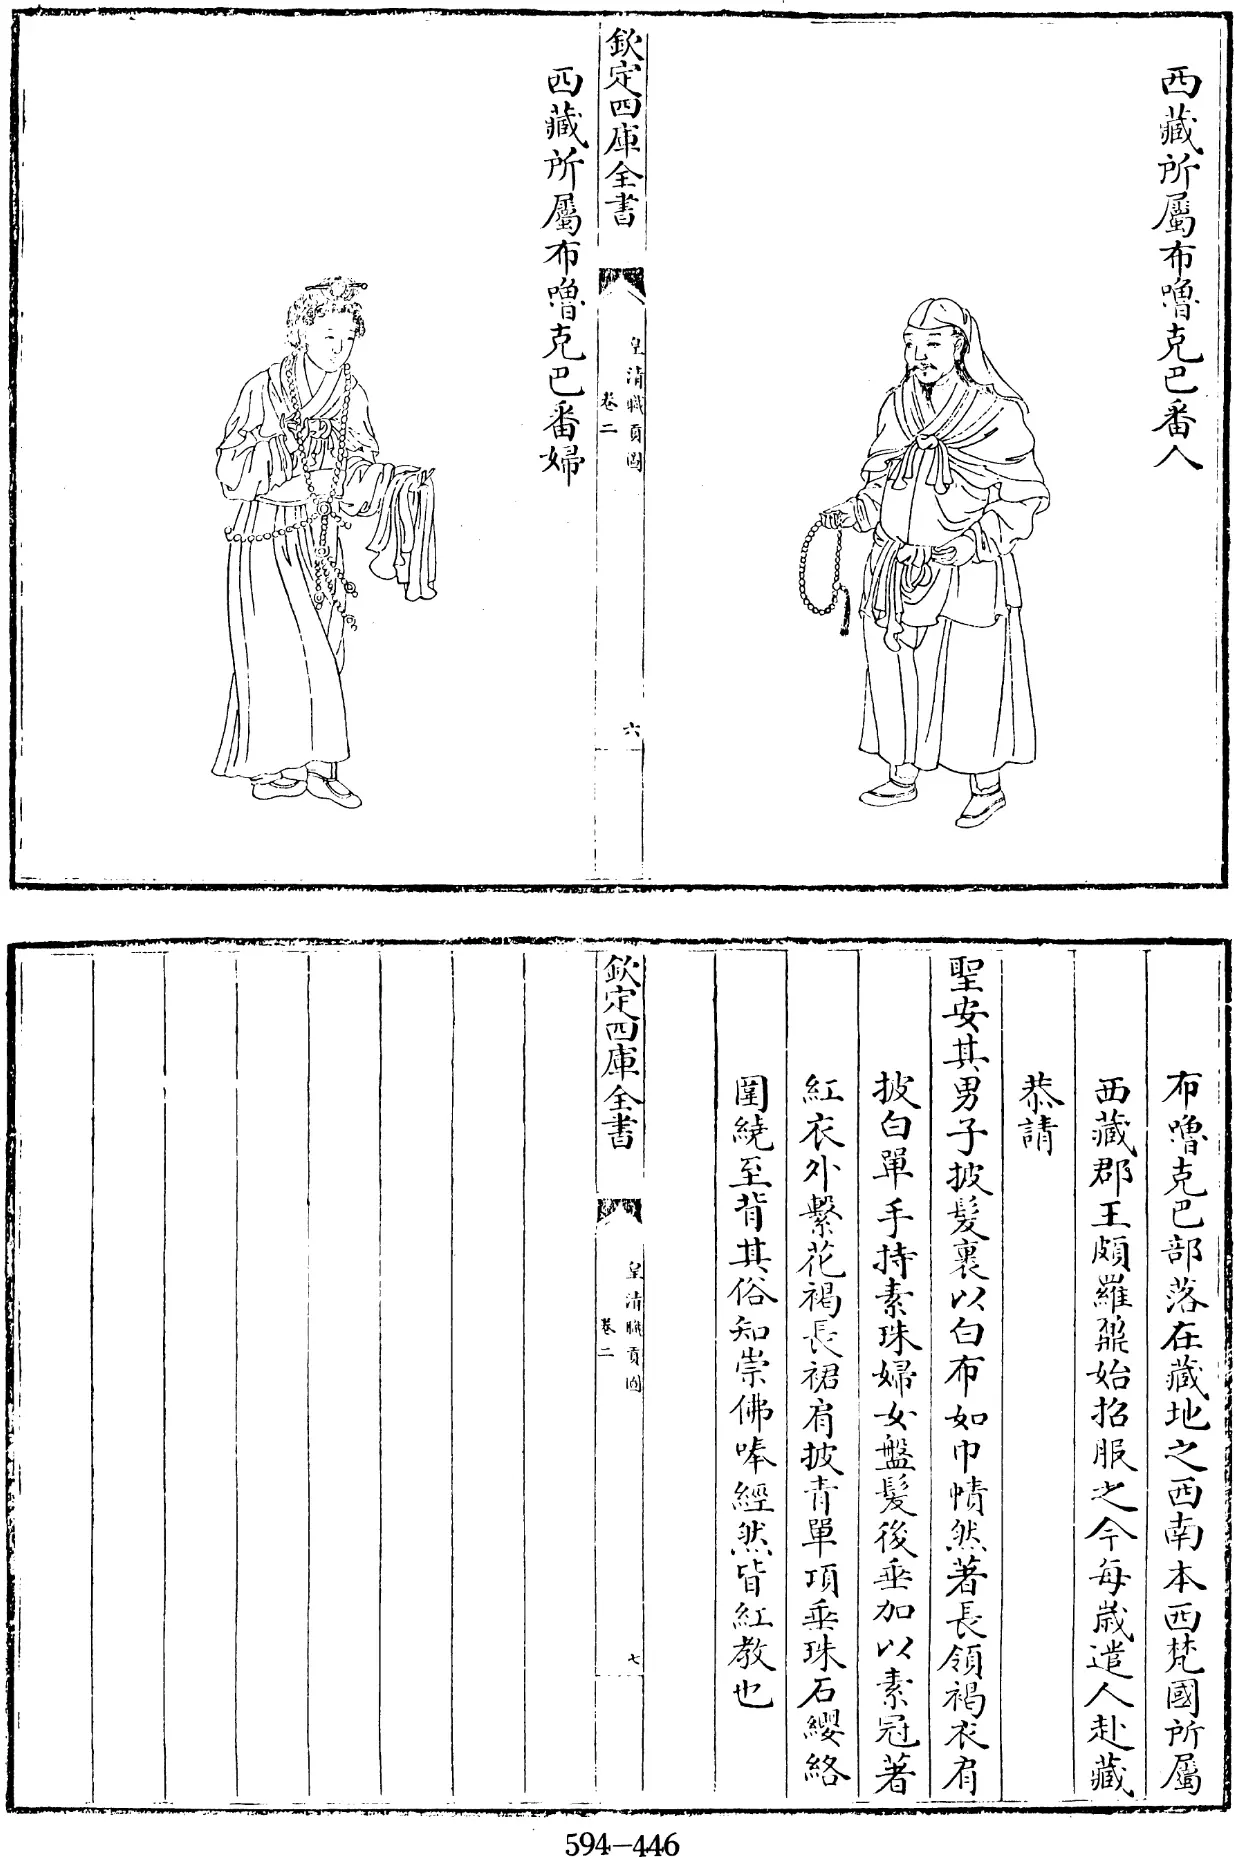 西藏所屬布嚕克巴番人
欽定四庫全書
皇清職貢圖
卷二
六
西藏所屬布嚕克巴番婦
布嚕克巴部落在藏地之西南本西梵國所屬
西藏郡王頗羅鼐始招服之今每歲遣人赴藏
恭請
聖安其男子披髮裹以白布如巾幘然著長領褐衣肩
披白單手持素珠婦女盤髮後垂加以素冠著
紅衣外繫花褐長裙肩披青單項垂珠石纓絡
圍繞至背其俗知崇佛唪經然皆紅教也
欽定四庫全書
皇清職貢圖
卷二
七
594-446